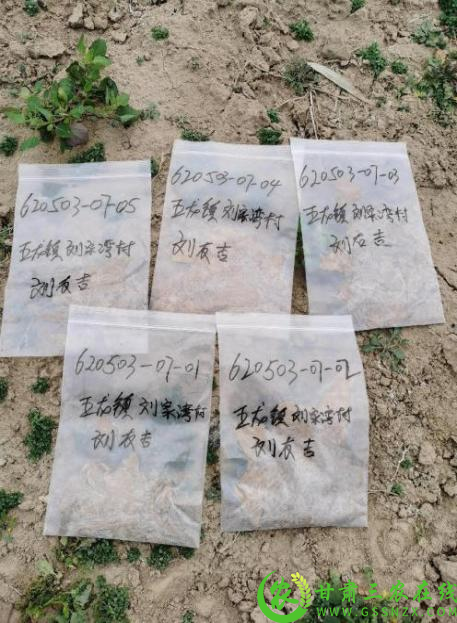 620503-07-05
五龙镇刘家湾村
刘友吉
620503-07-04
五龙镇刘家湾村
刘友吉
620503-07-03
五龙镇刘家湾村
刘友吉
620503-07-01
五龙镇刘家湾村
刘友吉
620503-07-02
五龙镇刘家湾村
刘友吉
甘肃三农在线
www.gssnzx.com